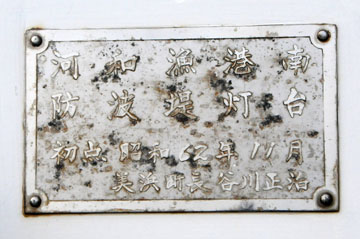 河和漁港南
防波堤灯台
初点 昭和62年11月
美浜町長谷川正治